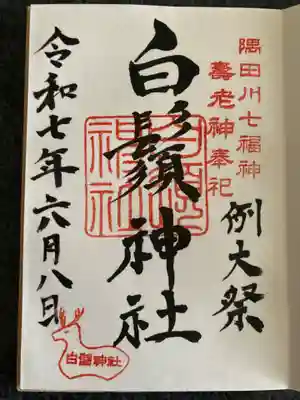 隅田川七福神
壽老神奉祀
例大祭
白鬚神社
令和七年六月八日
白鬚神社